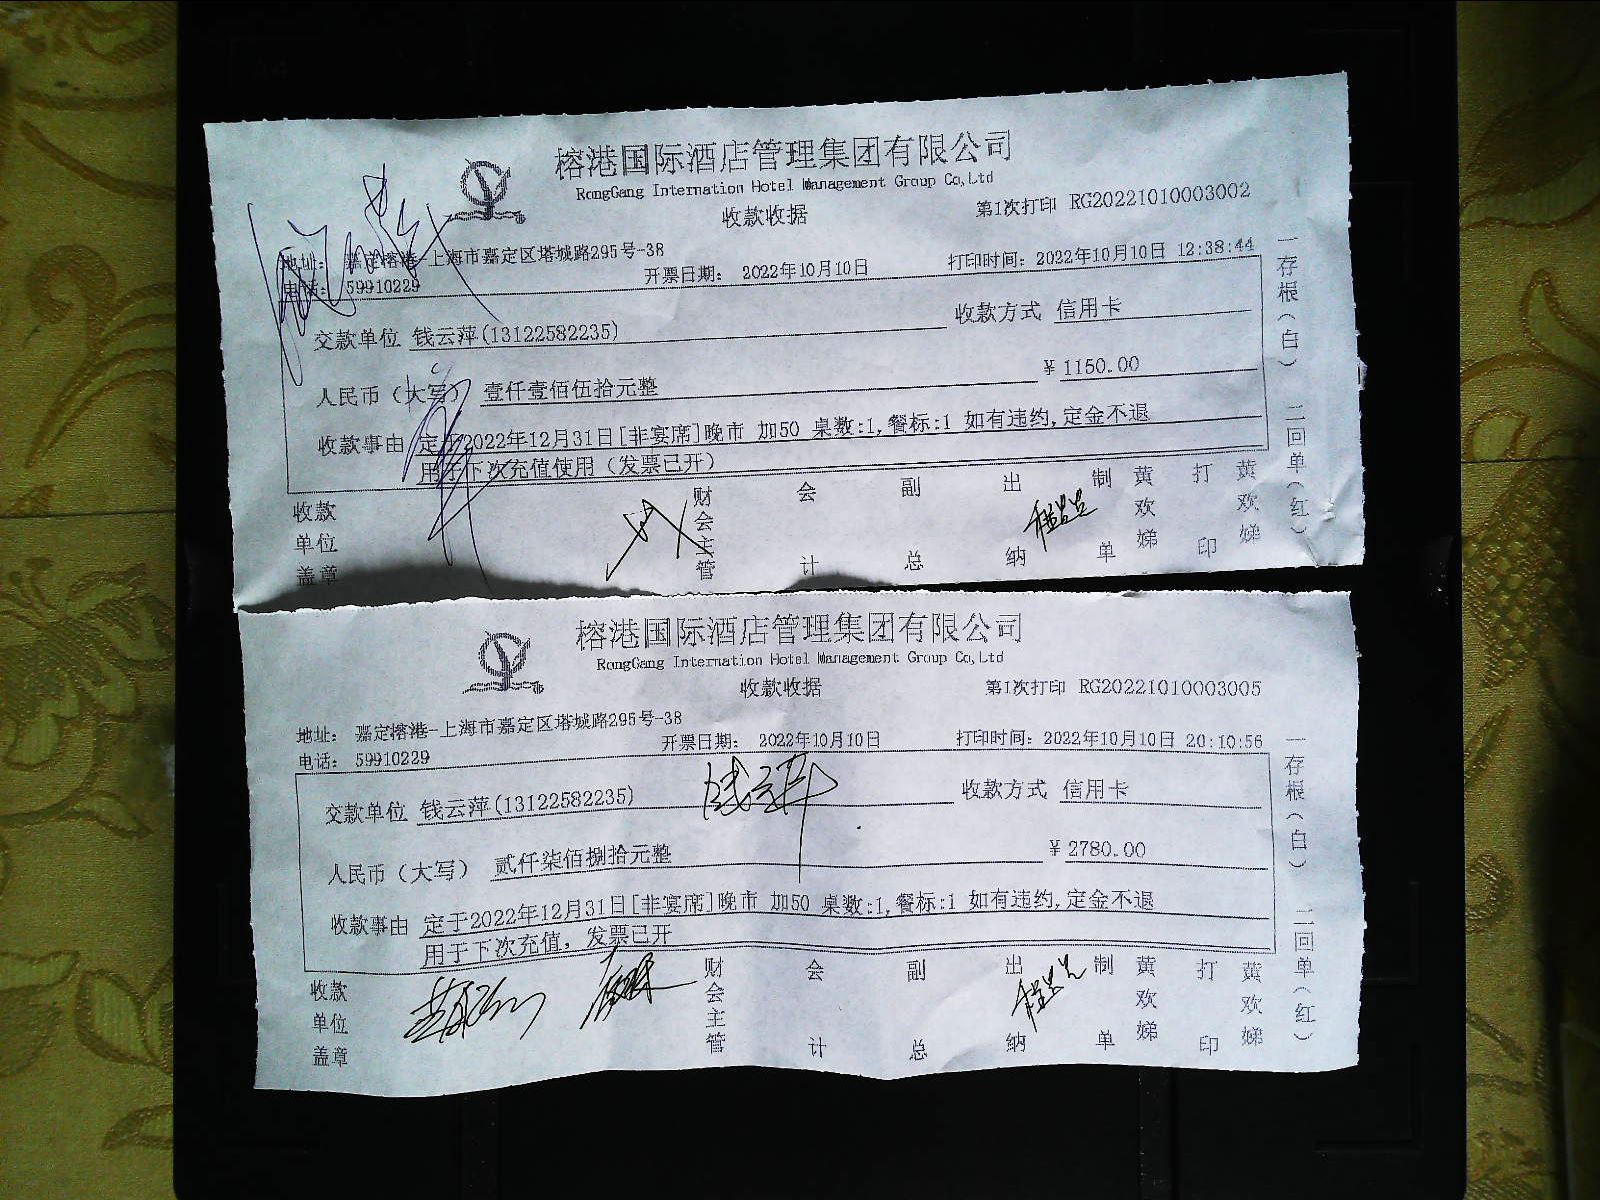 榕港国际酒店管理集团有限公司
RongGang Internation Hotel Management Group Co,Ltd
收款收据
第1次打印 RG20221010003002
地址： 嘉定榕港-上海市嘉定区塔城路295号-38
电话： 59910229
开票日期： 2022年10月10日
打印时间：2022年10月10日 12:38:44
交款单位 钱云萍(13122582235)
收款方式 信用卡
人民币（大写） 壹仟壹佰伍拾元整
￥1150.00
收款事由 定于2022年12月31日[非宴席]晚市 加50 桌数:1,餐标:1 如有违约,定金不退
用于下次充值使用（发票已开）
收款单位盖章
财会主管
会计
副总
出纳
制单
黄欢娣
打印
黄欢娣
一存根（白） 二回单（红）
榕港国际酒店管理集团有限公司
RongGang Internation Hotel Management Group Co,Ltd
收款收据
第1次打印 RG20221010003005
地址： 嘉定榕港-上海市嘉定区塔城路295号-38
电话： 59910229
开票日期： 2022年10月10日
打印时间：2022年10月10日 20:10:56
交款单位 钱云萍(13122582235)
钱云萍
收款方式 信用卡
人民币（大写） 贰仟柒佰捌拾元整
￥2780.00
收款事由 定于2022年12月31日[非宴席]晚市 加50 桌数:1,餐标:1 如有违约,定金不退
用于下次充值，发票已开
收款单位盖章
财会主管
会计
副总
出纳
制单
黄欢娣
打印
黄欢娣
一存根（白） 二回单（红）